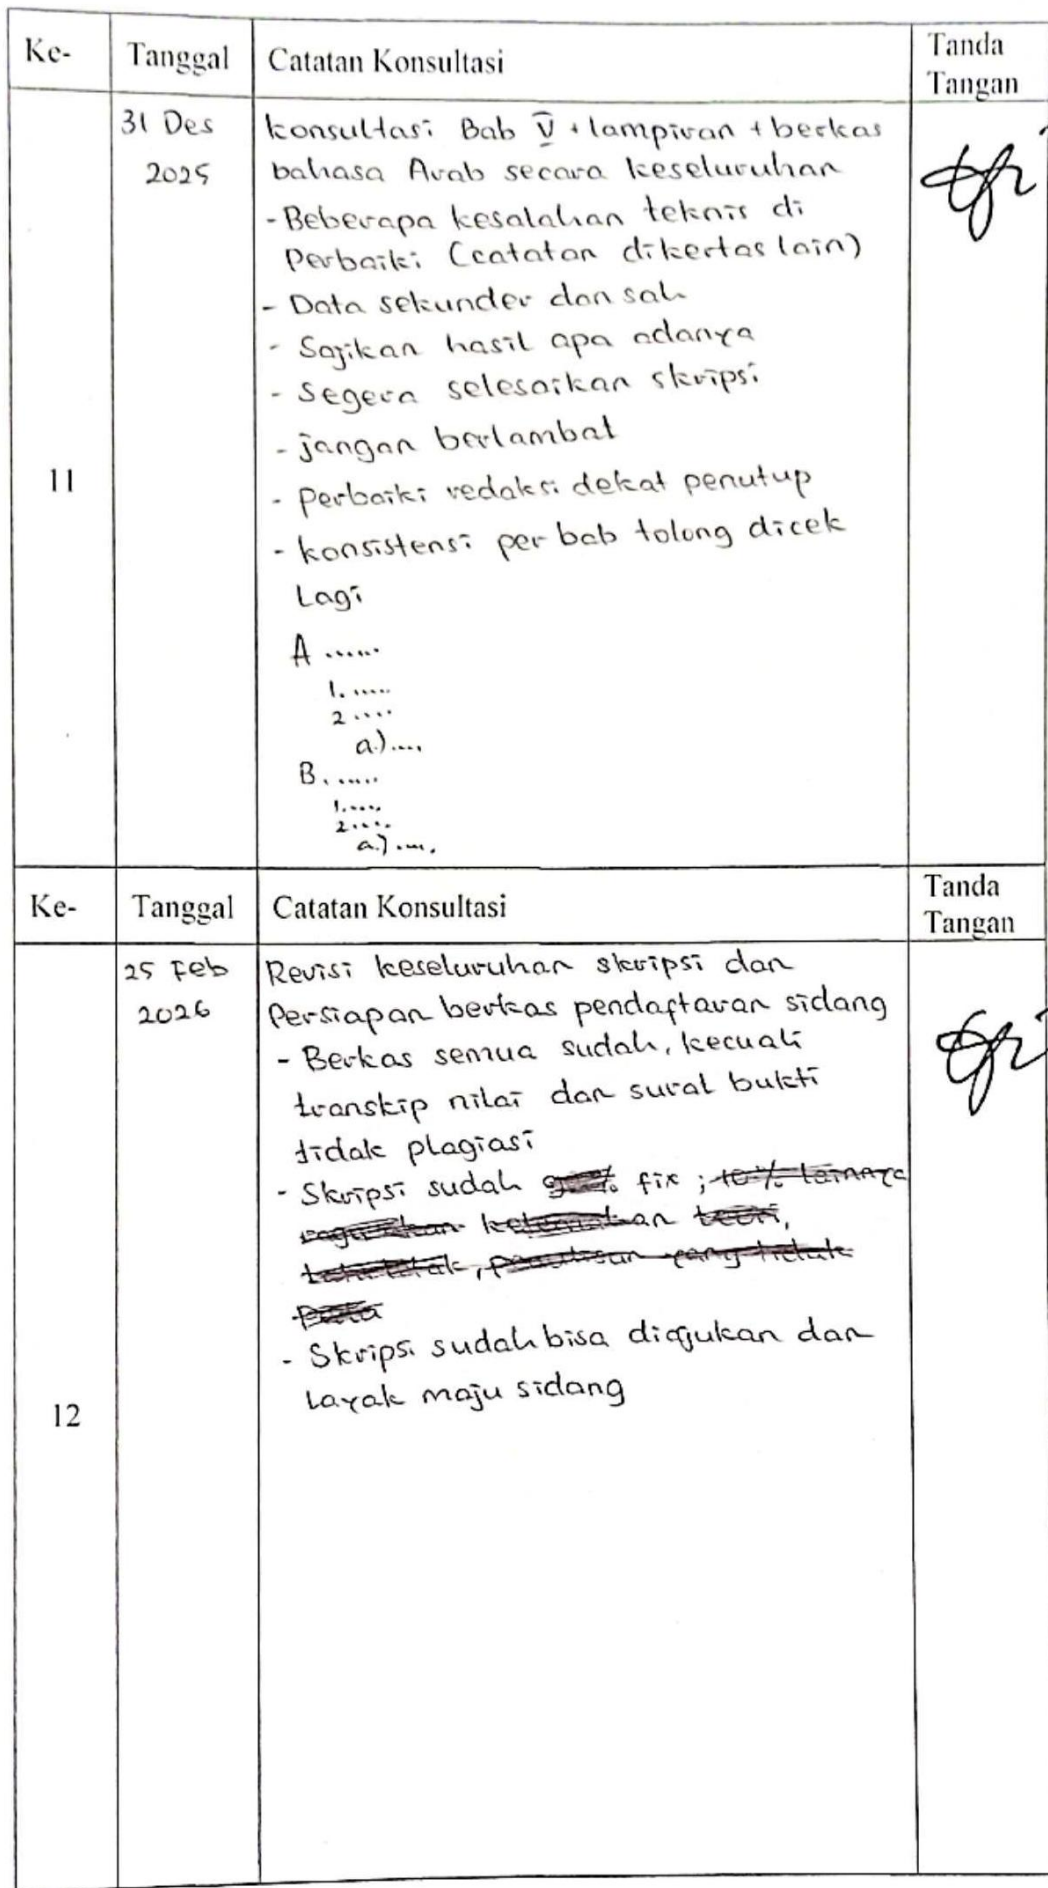 Ke- Tanggal Catatan Konsultasi Tanda
Tangan
11
31 Des
2025
konsultasi Bab V + lampiran + berkas
bahasa Arab secara keseluruhan
- Beberapa kesalahan teknis di
Perbaiki (catatan dikertas lain)
- Data sekunder dan sah
- Sajikan hasil apa adanya
- Segera selesaikan skripsi
- jangan berlambat
- perbaiki redaksi dekat penutup
- konsistensi per bab tolong dicek
Lagi
A ......
1. .....
2 ....
a.) ....
B. .....
1. ....
2. ....
a.) ....
Ke- Tanggal Catatan Konsultasi Tanda
Tangan
12
25 Feb
2026
Revisi keseluruhan skripsi dan
Persiapan berkas pendaftaran sidang
- Berkas semua sudah, kecuali
transkip nilai dan surat bukti
tidak plagiasi
- Skripsi sudah fix ; 10% lainnya
teori,
yang tidak
- Skripsi sudah bisa diajukan dan
Layak maju sidang